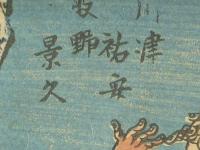 川津祐安
野景久